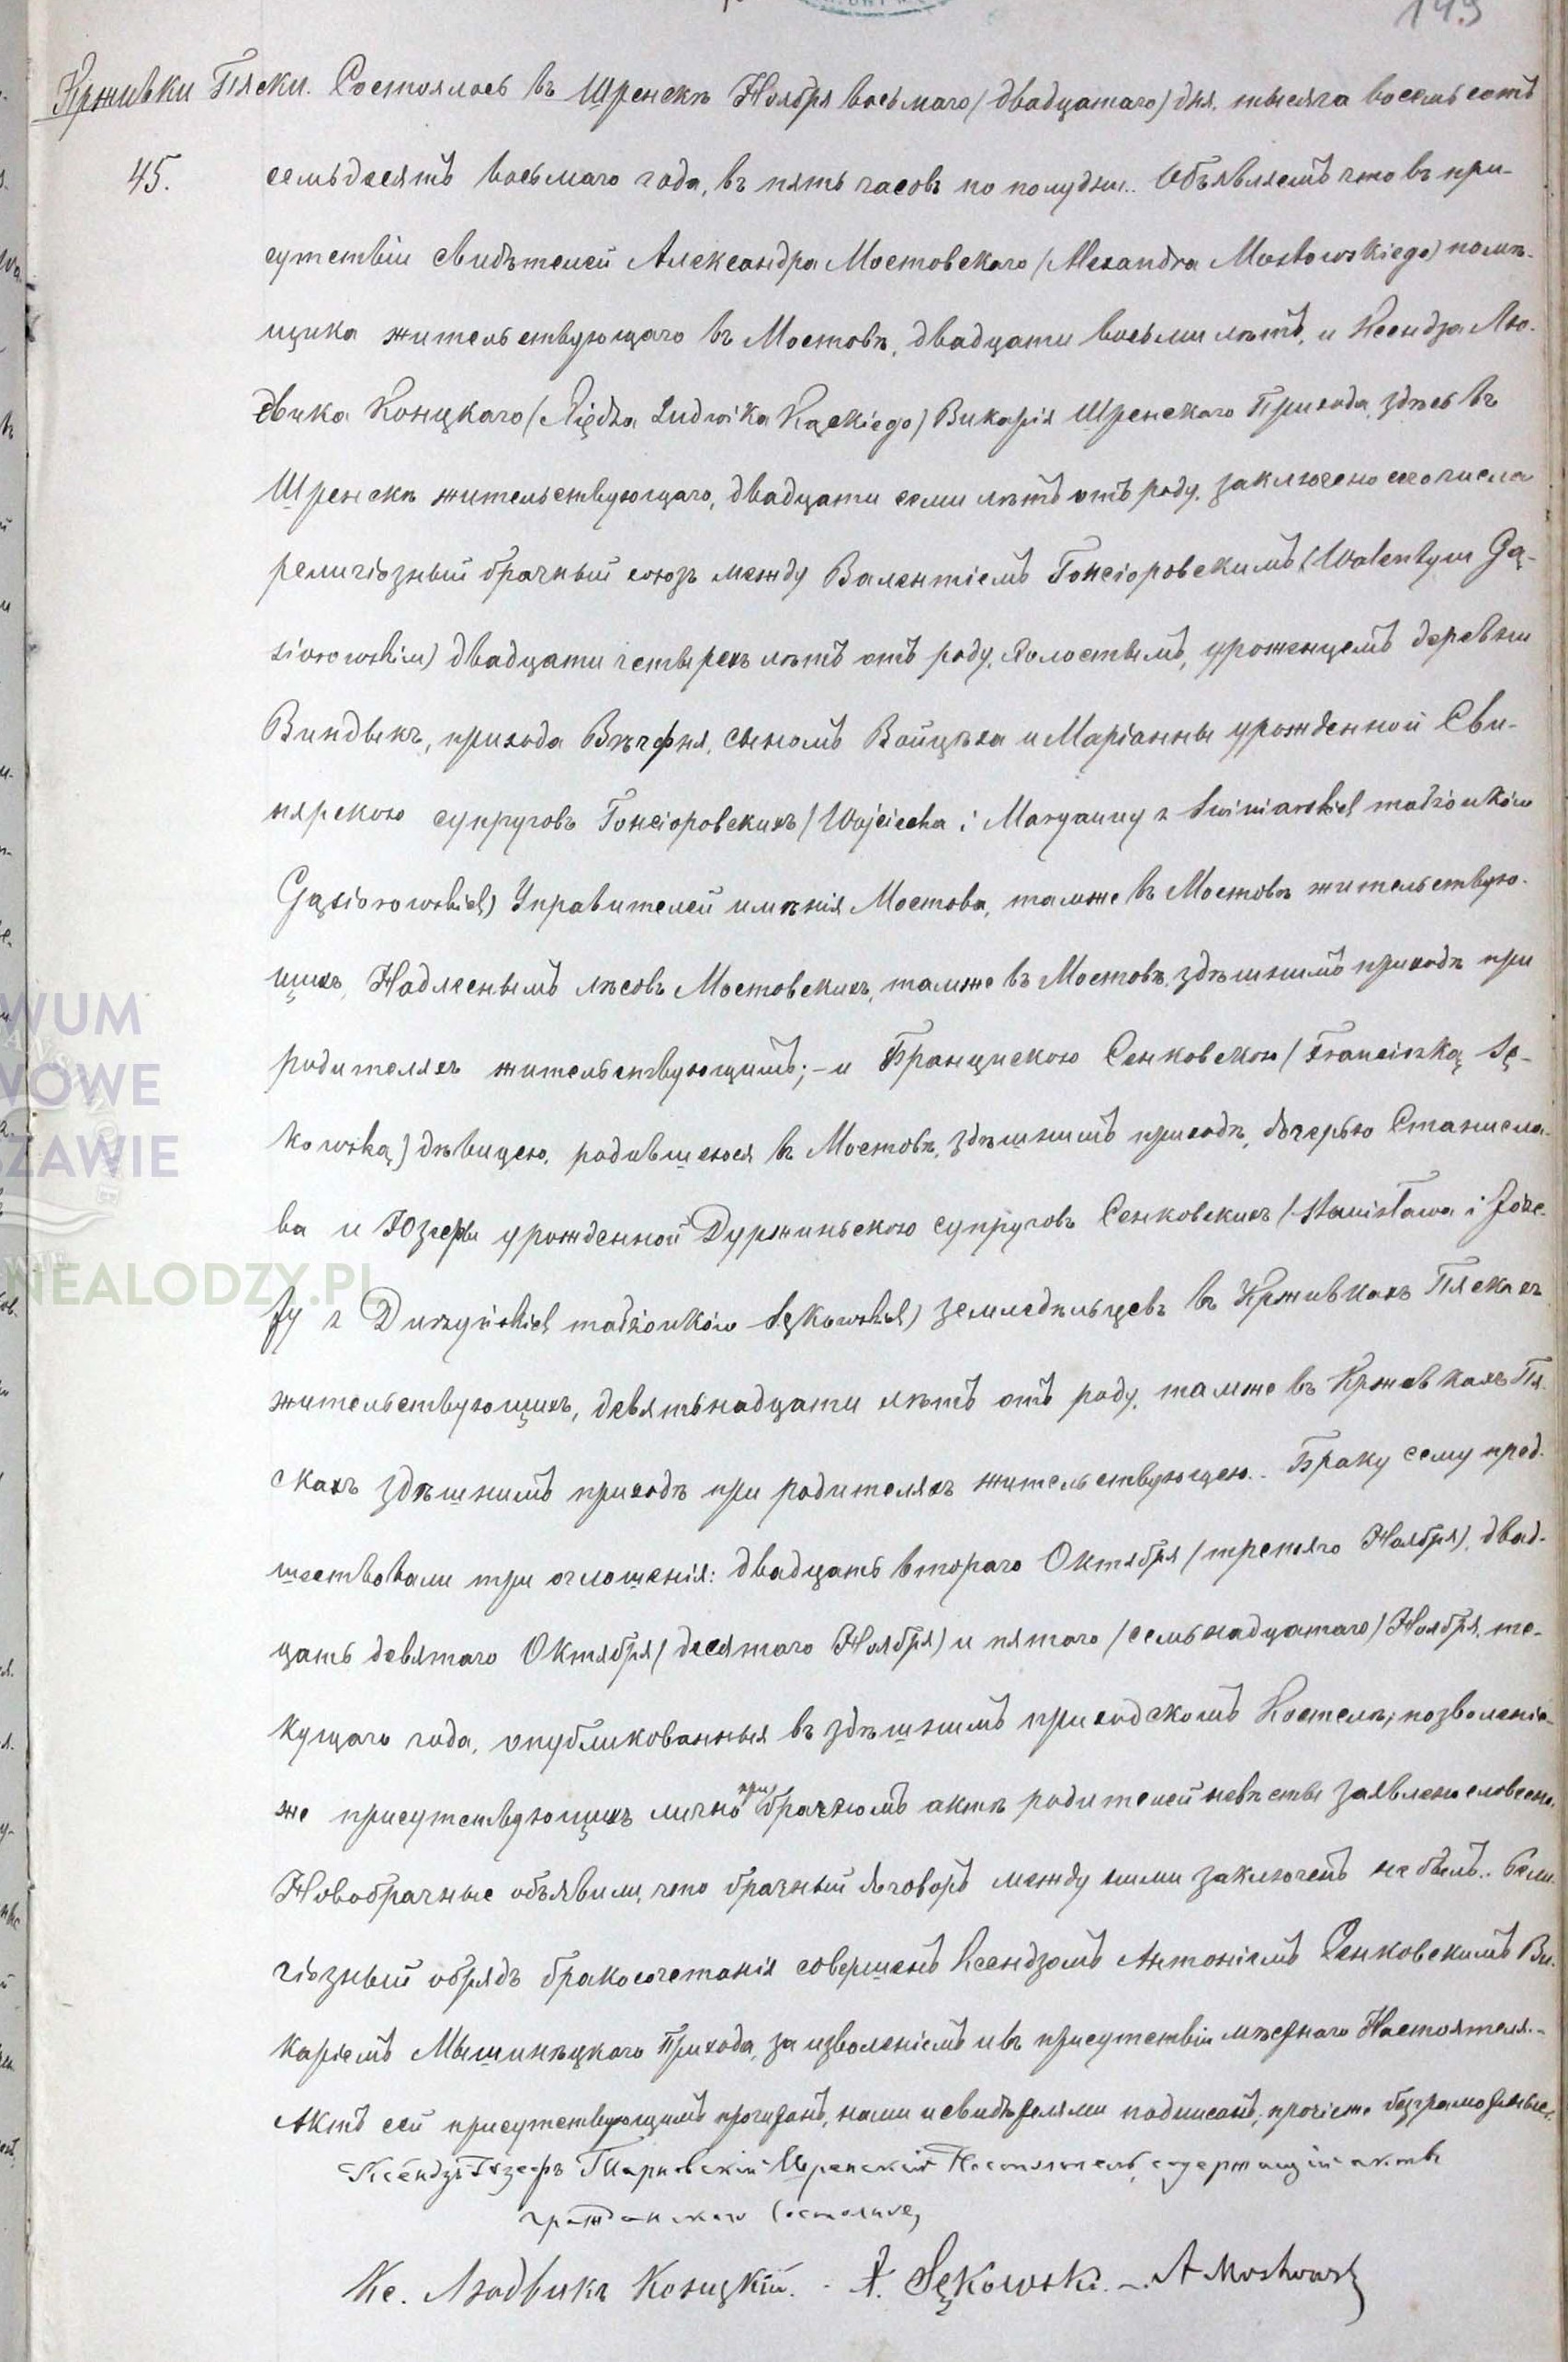 149
Крживки Пяски. Состоялось въ Шренскѣ Ноября восьмаго /двадцатаго/ дня, тысяча восемьсотъ
45. семьдесятъ восьмаго года, въ пять часовъ по полудни. Объявляемъ что въ при-
сутствіи свидѣтелей Александра Мостовскаго /Alexandra Mostowskiego/ помѣ-
щика жительствующаго въ Мостовѣ, двадцати восьми лѣтъ, и Ксендза Лю-
двика Концкаго /Xiędza Ludwika Kąckiego/ Викарія Шренскаго Прихода, здѣсь въ
Шренскѣ жительствующаго, двадцати семи лѣтъ отъ роду, заключено сего числа
религіозный брачный союзъ между Валентіемъ Гонсіоровскимъ /Walentym Gą-
siorowskim/ двадцати четырехъ лѣтъ отъ роду, холостымъ, уроженцемъ деревни
Виндыкъ, прихода Вѣчфня, сыномъ Войцѣха и Маріанны урожденной Сви-
нярскою супруговъ Гонсіоровскихъ /Wojciecha i Maryanny z Swiniarskich małżonków
Gąsiorowskich/ Управителей имѣнія Мостова, тамже въ Мостовѣ жительствую-
щихъ, Надлеснымъ лѣсовъ Мостовскихъ, тамже въ Мостовѣ, здѣшнимъ приходѣ при
родителяхъ жительствующимъ; - и Францискою Сенковскою /Franciszką Sę-
kowską/ дѣвицею, родившеюся въ Мостовѣ, здѣшнимъ приходѣ, дочерью Станисла-
ва и Юзефы урожденной Дуржиньскою супруговъ Сенковскихъ /Stanisława i Józe-
fy z Durzyńskich małżonków Sękowskich/ земледѣльцевъ въ Крживкахъ Пяскахъ
жительствующихъ, девятьнадцати лѣтъ отъ роду, тамже въ Крживкахъ Пя-
скахъ здѣшнимъ приходѣ при родителяхъ жительствующею. Браку сему пред-
шествовали три оглошенія: двадцать втораго Октября /третяго Ноября/, двад-
цать девятаго Октября /десятаго Ноября/ и пятаго /семьнадцатаго/ Ноября, те-
кущаго года, опубликованныя въ здѣшнимъ приходскомъ Костелѣ; позволеніе
же присутствующихъ лично при брачномъ актѣ родителей невѣсты заявлено словесно.
Новобрачные объявили, что брачный договоръ между ними заключенъ не былъ. Рели-
гіозный обрядъ бракосочетанія совершенъ Ксендзомъ Антоніемъ Сенковскимъ Ви-
каріемъ Мышинѣцкаго Прихода, за изволеніемъ и въ присутствіи мѣстнаго Настоятеля.-
Актъ сей присутствующимъ прочитанъ, нами и свидѣтелями подписанъ, прочіе безграмотные.
Ксендзъ Іозефъ Тарновскій Шренскій Настоятель, содержащій акты
гражданскаго Состоянія,
Кс. Людвикъ Концкій. - X. Sękowski. - A Mostowski